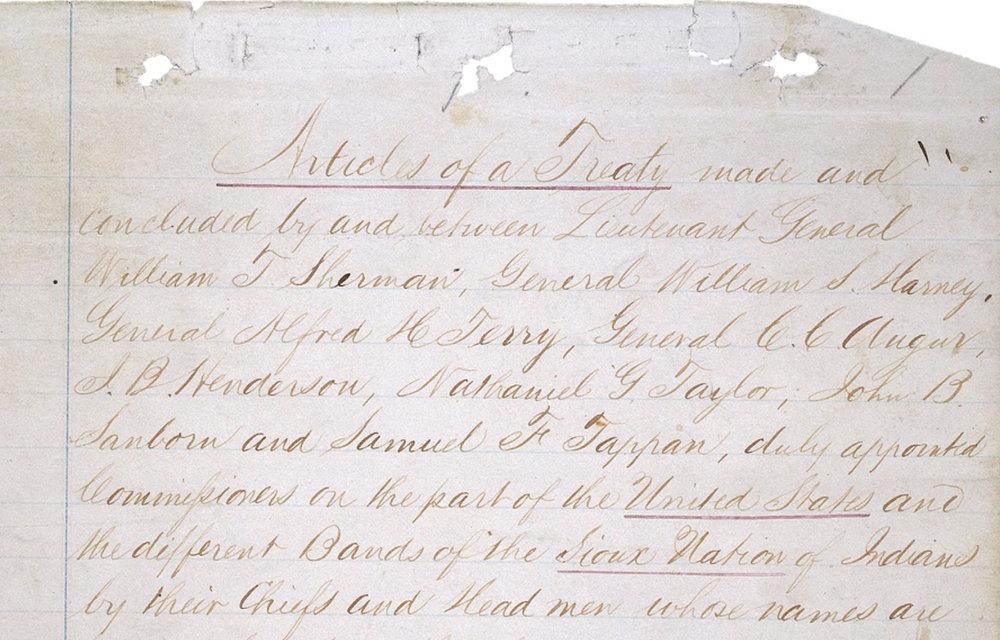 Articles of a Treaty made and
concluded by and between Lieutenant General
William T. Sherman, General William S. Harney,
General Alfred H Terry, General C. C. Augur,
J. B. Henderson, Nathaniel G Taylor, John B.
Sanborn and Samuel F Tappan, duly appointed
Commissioners on the part of the United States and
the different Bands of the Sioux Nation of Indians
by their Chiefs and Head men whose names are